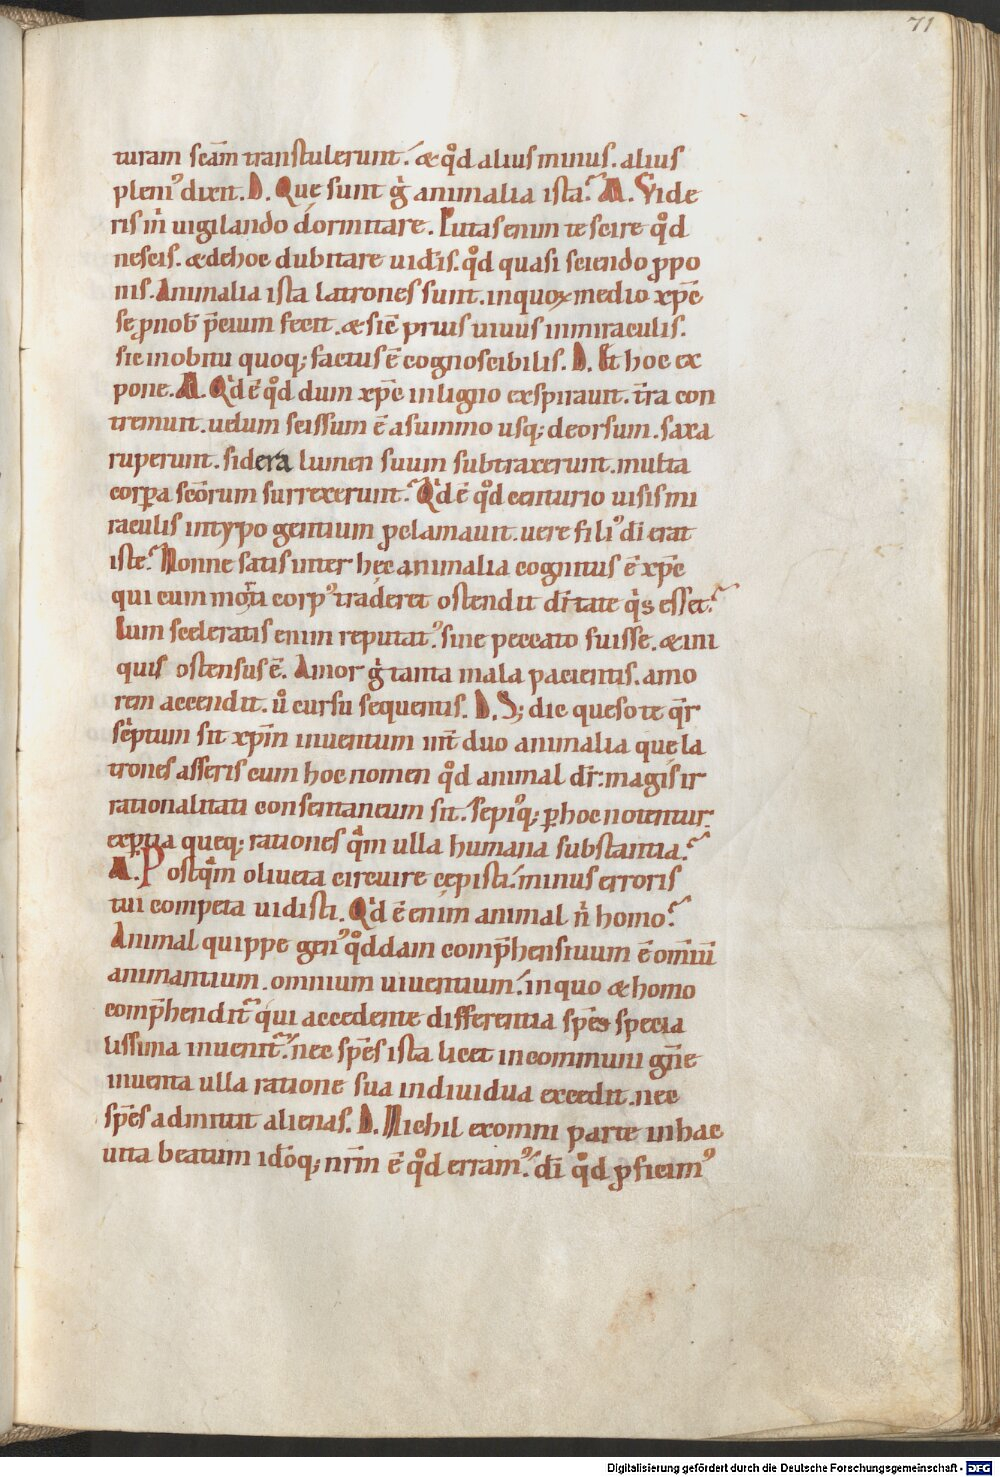 71
turam scām transtulerunt. & qd̊ alius minus. alius
pleni᾿ dixit. D. Que sunt g̊ animalia ista? A. Vide
ris m̄ uigilando dormitare. Putas enim te scire qd̊
nescis. & de hoc dubitare uidēis. qd̊ quasi sciendo ꝓpo
nis. Animalia ista latrones sunt. in quoꝝ medio xp̄c
se ꝓ nob̄ p̄cium fecit. & sic̄ prius uiuus in miraculis.
sic in obitu quoq; factus ē cognoscibilis. D. Et hoc ex
pone. A. Qd̊ ē qd̊ dum xp̄c in ligno exspirauit. t̄ra con
tremuit. uelum scissum ē a summo usq; deorsum. saxa
ruperunt. sidera lumen suum subtraxerunt. multa
corꝑa scōrum surrexerunt? Qd̊ ē qd̊ centurio uisis mi
raculis in typo gentium ꝓclamauit. uere fili᾿ dī erat
iste? Nonne satis inter hęc animalia cognitus ē xp̄c
qui cum morti corp᾿ traderet ostendit dītate qis esset?
Cum sceleratis enim reputat᾿. sine peccato fuisse. & ini
quis ostensus ē. Amor g̊ tanta mala pacientis. amo
rem accendit. ů cursu sequentis. D. S; dic queso te qr̄
sc̄ptum sit xp̄m inuentum int̄ duo animalia que la
trones asseris cum hoc nomen qd̊ animal dr̄: magis ir
rationalitati consentaneum sit. sepi᾿q; ꝑ hoc notentur
exꝑtia queq; rationes qm̄ ulla humana substantia?
A. Postqm̄ oliueta circuire cępisti. minus erroris
tui competa uidisti. Qd̊ ē enim animal n̄ homo?
Animal quippe gen᾿ qd̊dam comp̄hensiuum ē omīū
animantium. omnium uiuentium. in quo & homo
comp̄hendit᾿ qui accedente differentia spēs specia
lissima inuenit᾿. nec spēs ista licet in communi gn̄e
inuenta ulla ratione sua indiuidua excedit. nec
spēs admittit alienas. D. Nichil ex omni parte in hac
uita beatum idōq; nr̄m ē qd̊ erram᾿. dī qd̊ ꝓficim᾿
Digitalisierung gefördert durch die Deutsche Forschungsgemeinschaft - DFG